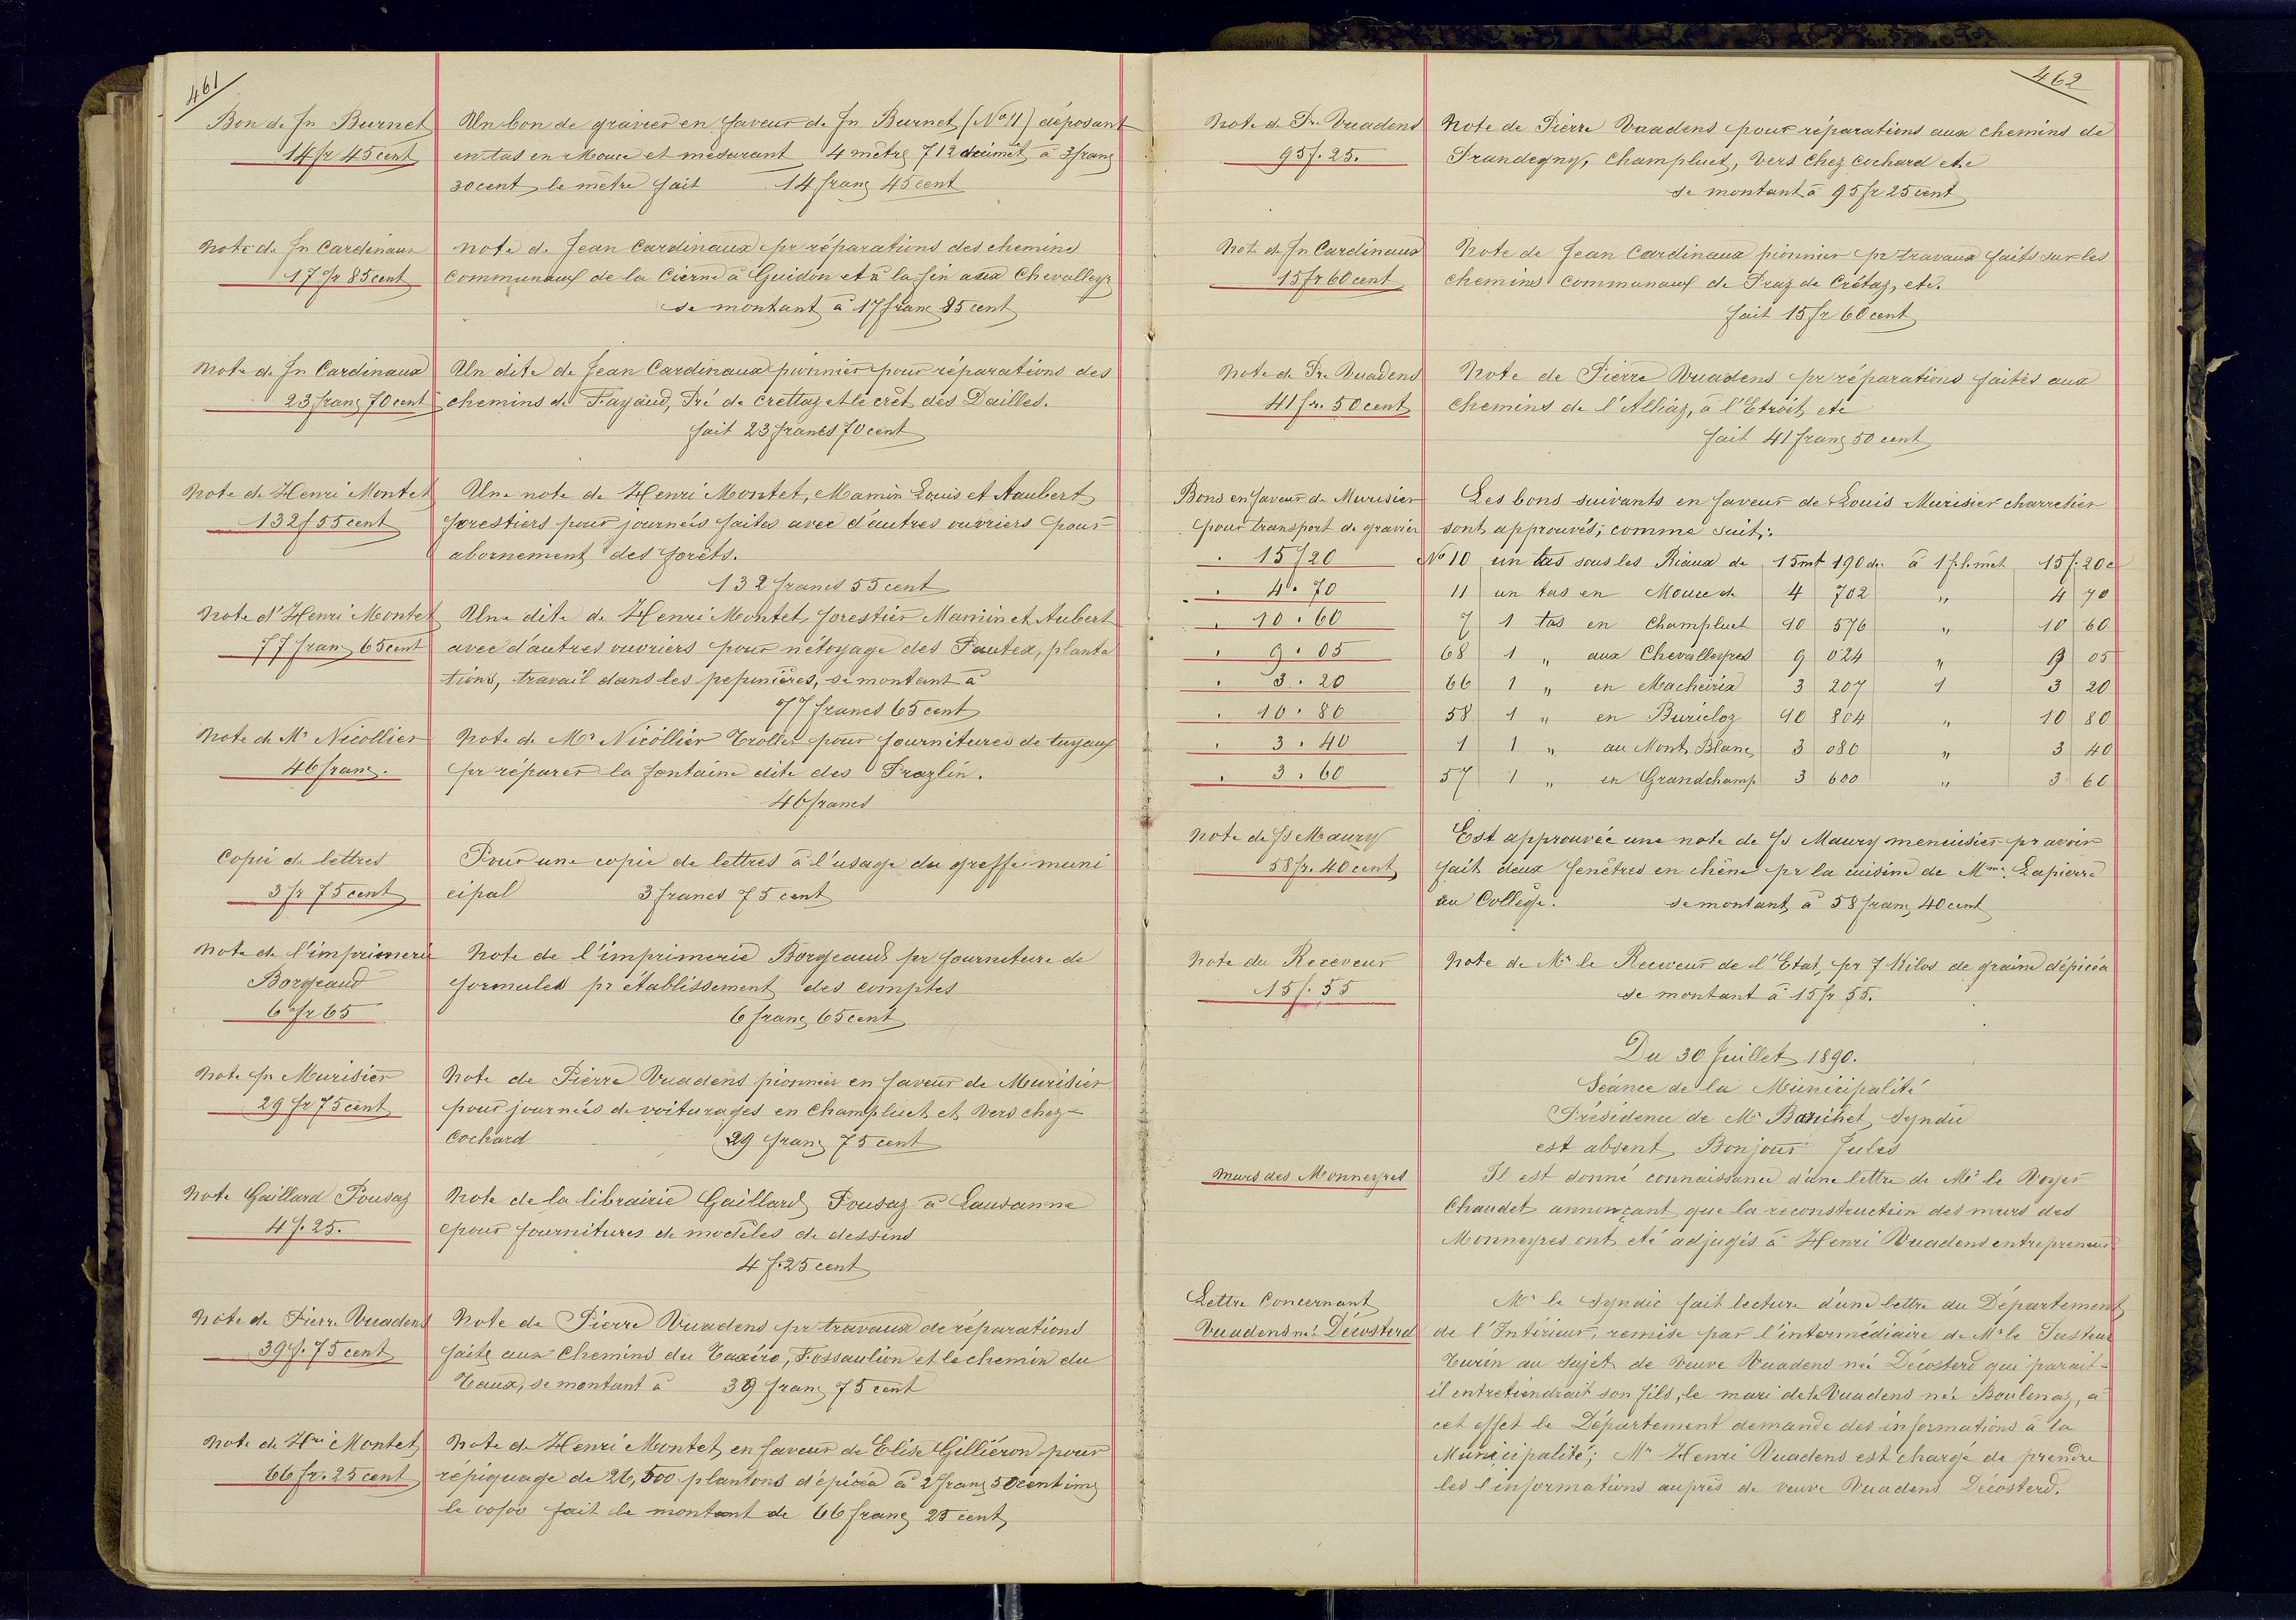 461
Bon de Jn Burnet
14 fr 45 cent
Un bon de gravier en faveur de Jn Burnet (No 11) déposant
en tas en Mouce et mesurant 4 mètres 712 décimèt à 3 francs
30 cent le mètre fait 14 francs 45 cent
Note de Jn Cardinaux
17 fr 85 cent
Note de Jean Cardinaux pr réparations des chemins
communaux de la Cierne à Guidon et à la fin aux Chevalleyres
se montant à 17 francs 85 cent
Note de Jn Cardinaux
23 francs 70 cent
Un dite de Jean Cardinaux pionnier pour réparations des
chemins de Fayaud, Pré de Crettaz et le crêt des Dailles.
fait 23 francs 70 cent
Note de Henri Montet
132 f 55 cent
Une note de Henri Montet, Mamin Louis et Aaubert
forestiers pour journées faites avec d'autres ouvriers pour
abornement des forêts.
132 francs 55 cent
Note d'Henri Montet
77 francs 65 cent
Une dite de Henri Montet, forestier Mamin et Aubert
avec d'autres ouvriers pour nétoyage des Pautex, planta
tions, travail dans les pepinières, se montant à
77 francs 65 cent
Note de Mr Nicollier
46 francs.
Note de Mr Nicollier Trollet pour fournitures de tuyaux
pr réparer la fontaine dite des Prazlin.
46 francs
Copie de lettres
3 fr 75 cent
Pour une copie de lettres à l'usage du greffe muni
cipal 3 francs 75 cent
Note de l'imprimerie
Borgeaud
6 fr 65
Note de l'imprimerie Borgeaud pr fourniture de
formules pr établissement des comptes
6 francs 65 cent
Note pr Murisier
29 fr 75 cent
Note de Pierre Vuadens pionnier en faveur de Murisier
pour journées de voiturages en Champluet et Vers chez
Cochard 29 francs 75 cent
Note Gaillard Pousaz
4 f. 25.
Note de la librairie Gaillard Pousaz à Lausanne
pour fournitures de modèles de dessins
4 f. 25 cent
Note de Pierre Vuadens
39 f. 75 cent
Note de Pierre Vuadens pr travaux de réparations
faits aux Chemins du Taxéro, Fossaulion et le chemin du
Vaux, se montant à 39 francs 75 cent
Note de Hri Montet
66 fr. 25 cent
Note de Henri Montet en faveur de Elise Gilliéron pour
répiquage de 26,500 plantons d'épicéa à 2 francs 50 centimes
le 00/00 fait le montant de 66 francs 25 cent
462
Note de Pre Vuadens
95 f. 25.
Note de Pierre Vuadens pour réparations aux chemins de
Prandegny, Champluet, Vers chez Cochard etc
se montant à 95 fr 25 cent
Note de Jn Cardinaux
15 fr 60 cent
Note de Jean Cardinaux pionnier pr travaux faits sur les
chemins communaux de Praz de Crétaz, etc.
fait 15 fr 60 cent
Note de Pre Vuadens
41 fr. 50 cent
Note de Pierre Vuadens pr réparations faites aux
chemins de l'Alliaz, à l'Etroit etc
fait 41 francs 50 cent
Bons en faveur de Murisier
pour transport de gravier
Les bons suivants en faveur de Louis Murisier charretier
sont approuvés, comme suit:
15 f 20 No 10 un tas sous les Riaux de 15 mt 190 de. à 1 f. le mèt 15 f. 20 c
4. 70 11 un tas en Mouce de 4 702 " 4 70
10. 60 7 1 tas en Champluet 10 576 " 10 60
9. 05 68 1 " aux Chevalleyres 9 024 " 9 05
3. 20 66 1 " en Macheiria 3 207 1 3 20
10. 80 58 1 " en Burieloz 10 804 " 10 80
3. 40 1 1 " au Mont Blanc 3 080 " 3 40
3. 60 57 1 " en Grandchamp 3 600 " 3 60
Note de Fs Maury
58 fr. 40 cent
Est approuvée une note de Fs Maury menuisier pr avoir
fait deux fenêtres en chêne pr la cuisine de Mme Lapierre
au Collège. se montant à 58 francs 40 cent
Note du Receveur
15 f. 55
Note de Mr le Receveur de l'Etat, pr 7 Kilos de graine d'épicéa
se montant à 15 fr 55.
Du 30 Juillet 1890.
Séance de la Municipalité
Présidence de Mr Bonichet, Syndic
est absent Bonjour Jules
Murs des Monneyres
Il est donné connaissance d'une lettre de Mr le Voyer
Chaudet annonçant que la reconstruction des murs des
Monneyres ont été adjugés à Henri Vuadens entrepreneur
Lettre Concernant
Vuadens née Décosterd
Mr le Syndic fait lecture d'une lettre du Département
de l'Intérieur, remise par l'intermédiaire de Mr le Pasteur
Turin au sujet de Veuve Vuadens née Décosterd qui parait-
il entretiendrait son fils, le mari de Vuadens née Boulenaz, à
cet effet le Département demande des informations à la
Municipalité; Mr Henri Vuadens est chargé de prendre
les informations auprès de veuve Vuadens Décosterd.